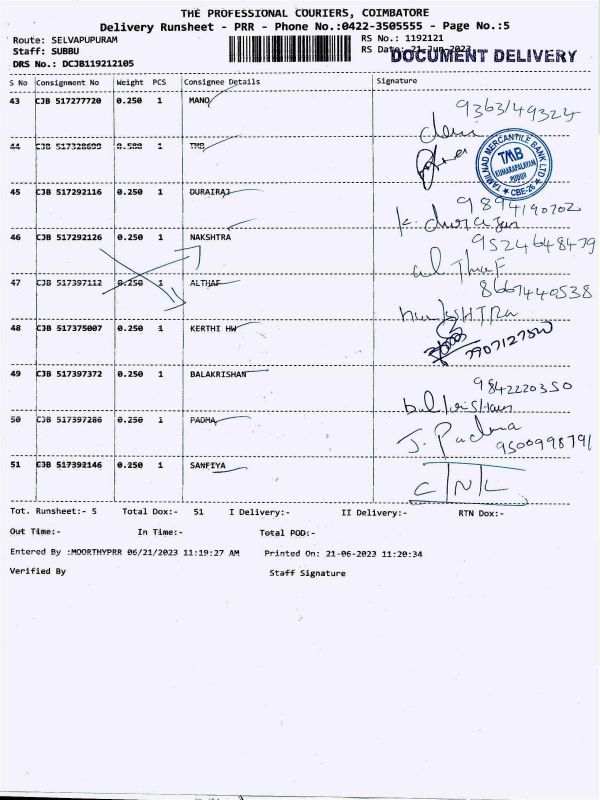 THE PROFESSIONAL COURIERS, COIMBATORE
Delivery Runsheet - PRR - Phone No.:0422-3505555 - Page No.:5
Route: SELVAPUPURAM RS No.: 1192121
Staff: SUBBU RS Date: 21-Jun-2023
DOCUMENT DELIVERY
DRS No.: DCJB119212105
S No Consignment No Weight PCS Consignee Details Signature
43 CJB 517277720 0.250 1 MANO
9363149324
44 CJB 517328699 0.500 1 TMB
TAMILNAD MERCANTILE BANK LTD
TMB
KUMARAPALAYAM
PUDUR
CBE-26
45 CJB 517292116 0.250 1 DURAIRAJ
9894190202
46 CJB 517292126 0.250 1 NAKSHTRA
9524648479
47 CJB 517397112 0.250 1 ALTHAF
8667440538
48 CJB 517375007 0.250 1 KERTHI HW
49 CJB 517397372 0.250 1 BALAKRISHAN
9842220350
50 CJB 517397286 0.250 1 PADMA
J. Padma
9500998791
51 CJB 517392146 0.250 1 SANFIYA
C/N/L
Tot. Runsheet:- 5 Total Dox:- 51 I Delivery:- II Delivery:- RTN Dox:-
Out Time:- In Time:- Total POD:-
Entered By :MOORTHYPRR 06/21/2023 11:19:27 AM Printed On: 21-06-2023 11:20:34
Verified By Staff Signature